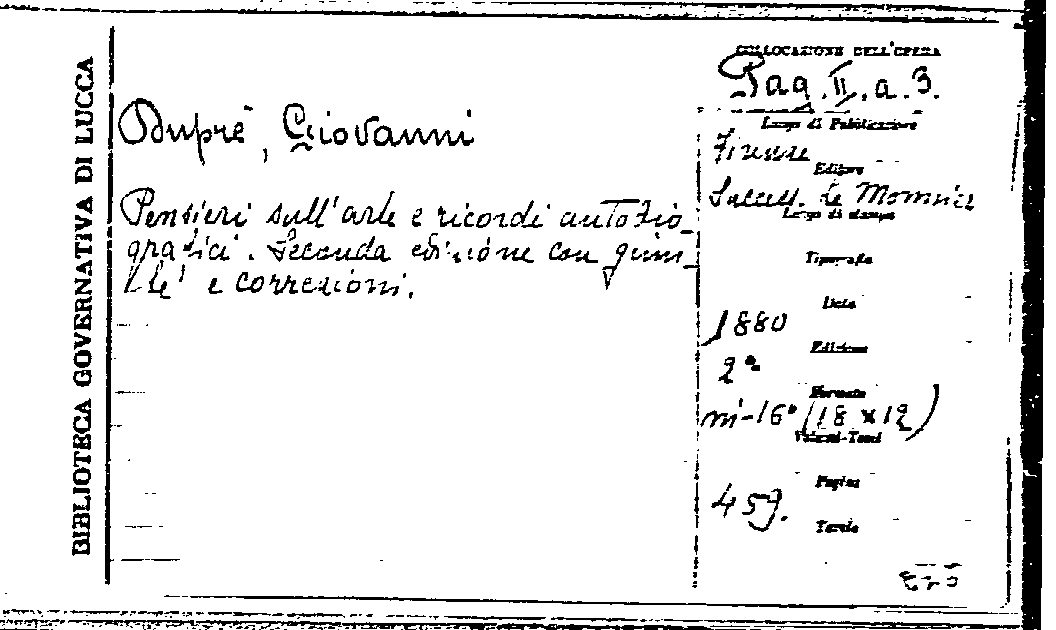 BIBLIOTECA GOVERNATIVA DI LUCCA
Duprè, Giovanni
Pensieri sull'arte e ricordi autobio-
grafici. Seconda edizione con giun-
te e correzioni.
COLLOCAZIONE DELL'OPERA
Pag. II. a. 3.
Luogo di Pubblicazione
Firenze
Editore
Success. Le Monnier
Luogo di stampa
Tipografia
Data
1880
Edizione
2ª
Formato
in-16° (18 x 12)
Volumi-Tomi
Pagine
459.
Tavole